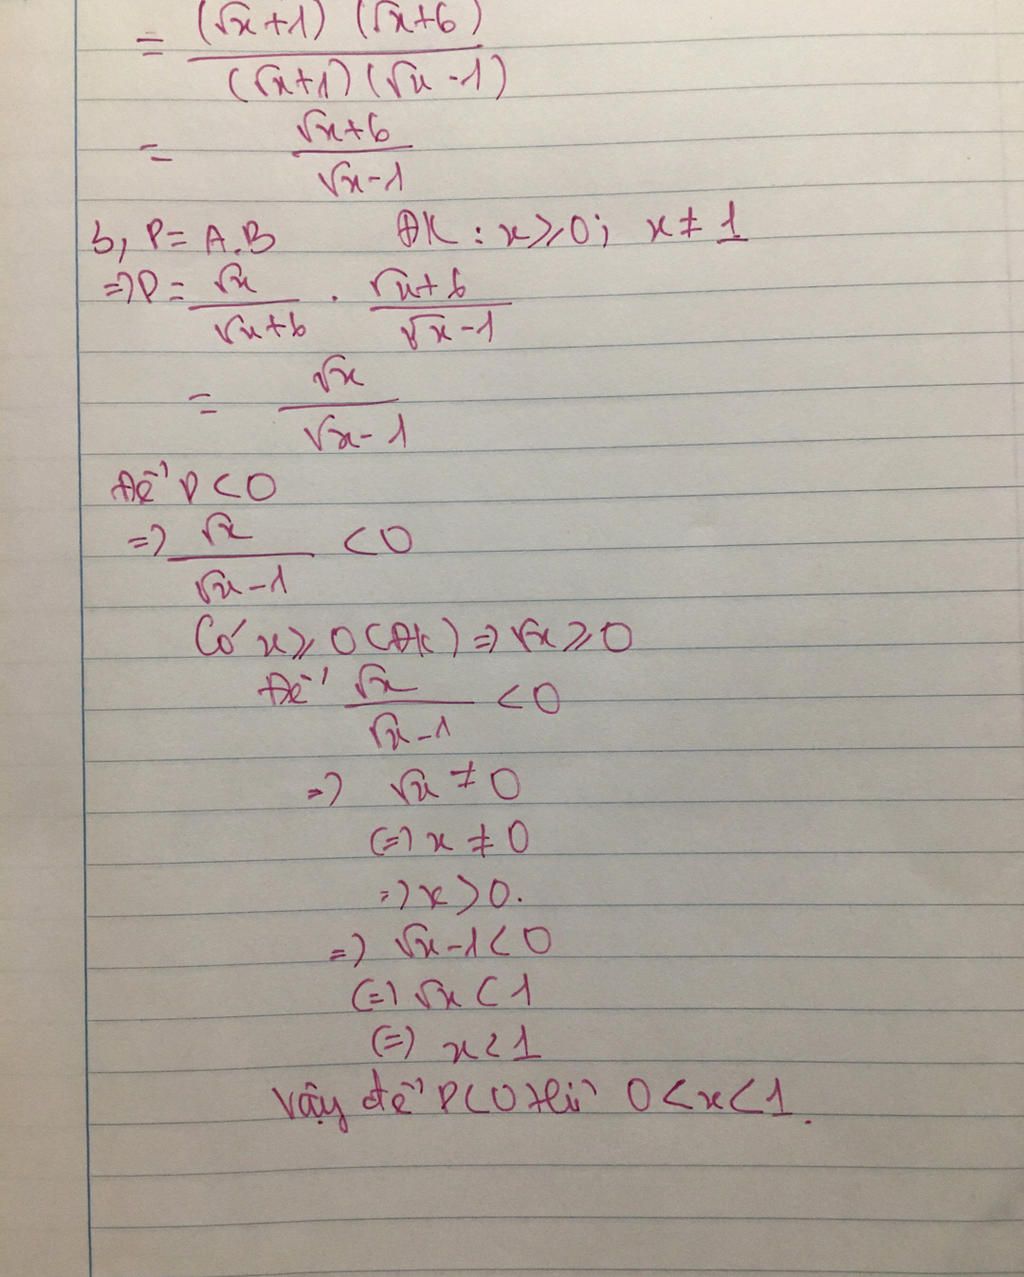 = (√x+1) (√x+6) / (√x+1)(√x-1)
= √x+6 / √x-1
b, P = A.B ĐK : x ≥ 0; x ≠ 1
=> P = √x / √x+6 . √x+6 / √x-1
= √x / √x-1
Để P < 0
=> √x / √x-1 < 0
Có x ≥ 0 (ĐK) => √x ≥ 0
Để √x / √x-1 < 0
=> √x ≠ 0
(=) x ≠ 0
=> x > 0.
=> √x-1 < 0
(=) √x < 1
(=) x < 1
Vậy để P < 0 thì 0 < x < 1.